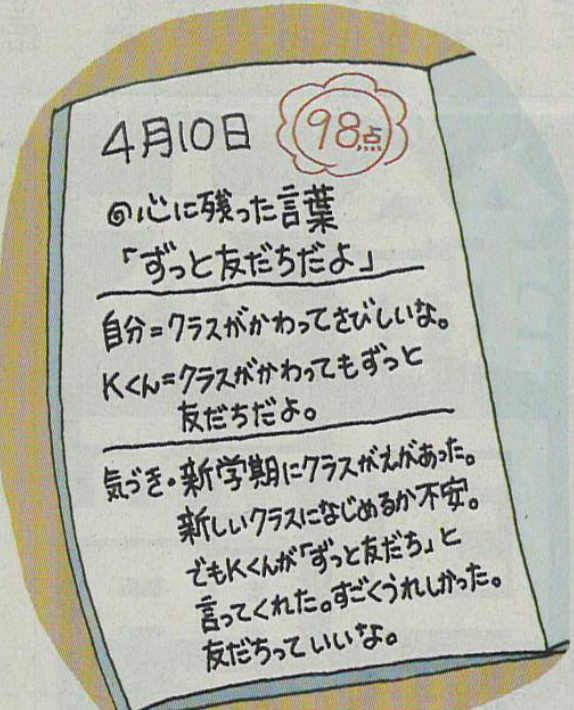 4月10日 98点
◎心に残った言葉
「ずっと友だちだよ」
自分=クラスがかわってさびしいな。
Kくん=クラスがかわってもずっと
友だちだよ。
気づき・新学期にクラスがえがあった。
新しいクラスになじめるか不安。
でもKくんが「ずっと友だち」と
言ってくれた。すごくうれしかった。
友だちっていいな。